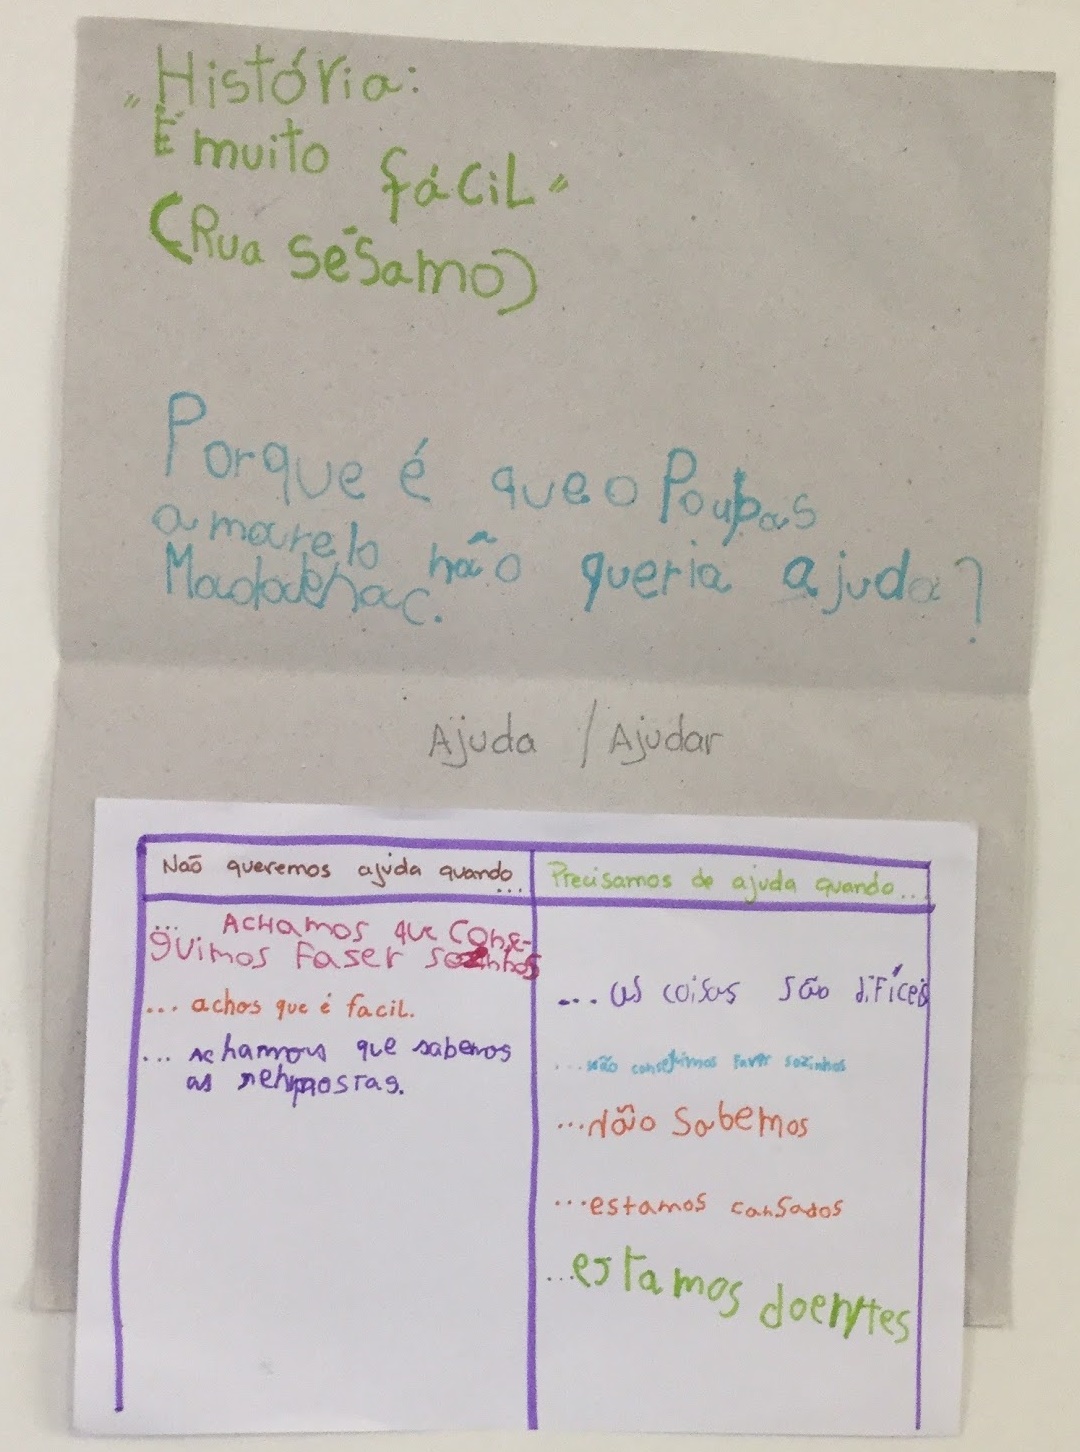 "História:
É muito fácil"
(Rua Sésamo)
Porque é que o Poupas
amarelo não queria ajuda?
Madalena C.
Ajuda / Ajudar
Não queremos ajuda quando...
... Achamos que conse-
guimos faser sozinhos
... achos que é facil.
... Achamos que sabemos
as
Precisamos de ajuda quando...
... as coisas são difíceis
... não conseguimos sozinhos
... não sabemos
... estamos cansados
... estamos doentes